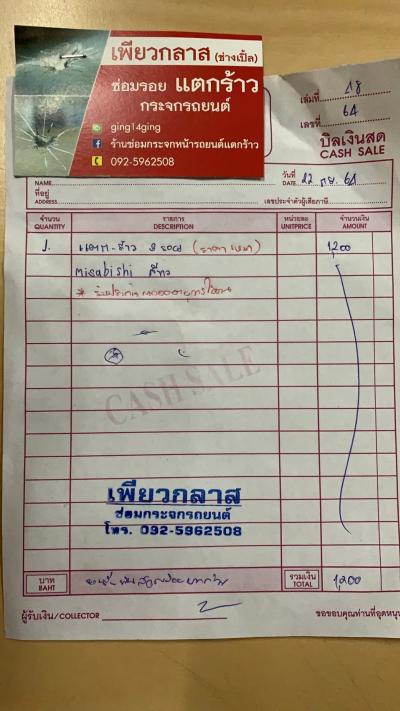 เพียวกลาส (ช่างเปิ้ล)
ซ่อมรอย แตกร้าว
กระจกรถยนต์
ging14ging
ร้านซ่อมกระจกหน้ารถยนต์แตกร้าว
092-5962508
เล่มที่ 18
เลขที่ 64
บิลเงินสด
CASH SALE
วันที่ DATE 22 กย. 61
NAME
ที่อยู่
ADDRESS
เลขประจำตัวผู้เสียภาษี
จำนวน QUANTITY รายการ DESCRIPTION หน่วยละ UNITPRICE จำนวนเงิน AMOUNT
1. แตก-ร้าว (ราคาเหมา) 1,200
Misabishi สีขาว
* รับประกันตลอดอายุการใช้งาน
CASH SALE
เพียวกลาส
ซ่อมกระจกรถยนต์
โทร. 092-5962508
บาท BAHT รวมเงิน TOTAL 1,200
ผู้รับเงิน/COLLECTOR
ขอขอบคุณท่านที่อุดหนุน